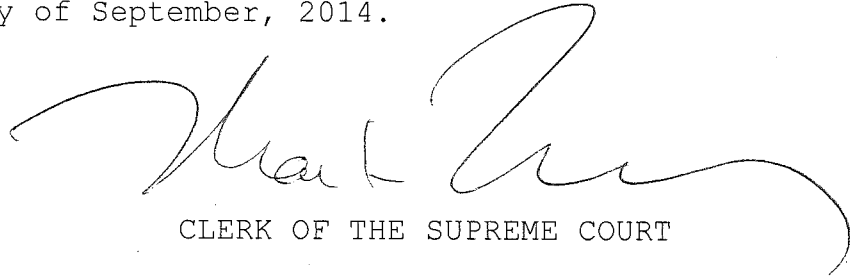 y of September, 2014.
Mark
CLERK OF THE SUPREME COURT